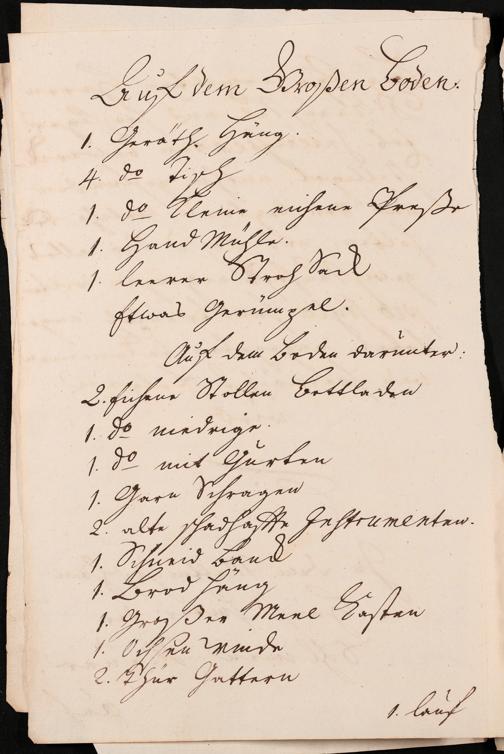 Auf dem Großen Boden.
1. Geräth Häng.
4. do Tisch
1. do Kleine eichene Preße
1. Hand Mühle.
1. leerer Stroh Sack
Etwas Gerümpel.
Auf dem Boden darunter:
2. Eichene Stollen Bettladen
1. do niedrige.
1. do mit Gurten
1. Garn Schragen
2. alte schadhaffte Instrumenten.
1. Schneid Banck
1. Brod Häng
1. Großer Meel Kasten
1. Ochsen winde
2. Thür Gattern
1. lauf